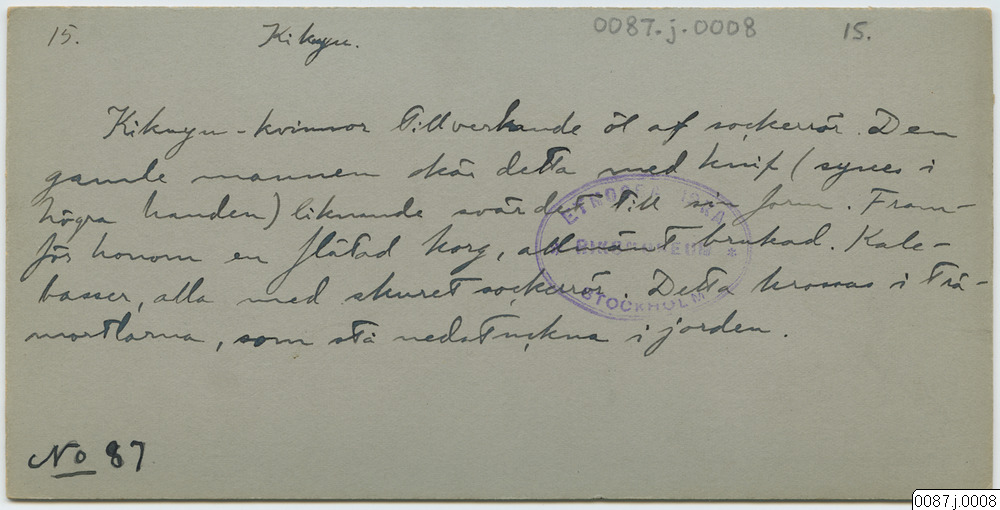 15. Kikuyu. 0087.j.0008 15.
Kikuyu-kvinnor tillverkande öl af sockerrör. Den
gamle mannen skär detta med knif (synes i
högra handen) liknande svärdet till sin form. Fram-
för honom en flätad korg, allmänt brukad. Kale-
basser, alla med skuret sockerrör. Detta krossas i trä-
mortlarna, som stå nedstuckna i jorden.
ETNOGRAFISKA
* RIKSMUSEUM *
STOCKHOLM
No 87
0087.j.0008